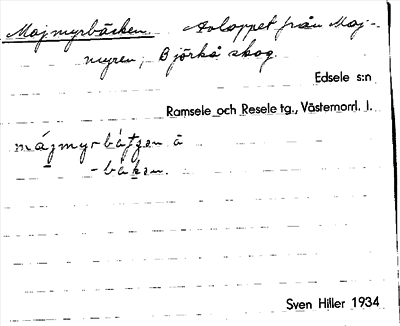 Majmyrbäcken. Avloppet från Maj-
myren, Björkå skog.
Edsele s:n
Ramsele och Resele tg., Västernorrl. l.
májmyrbátjen å
-bäken.
Sven Hiller 1934